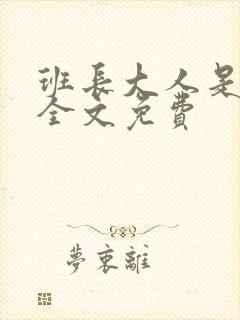 班長大人是
全文免費
夢裏離